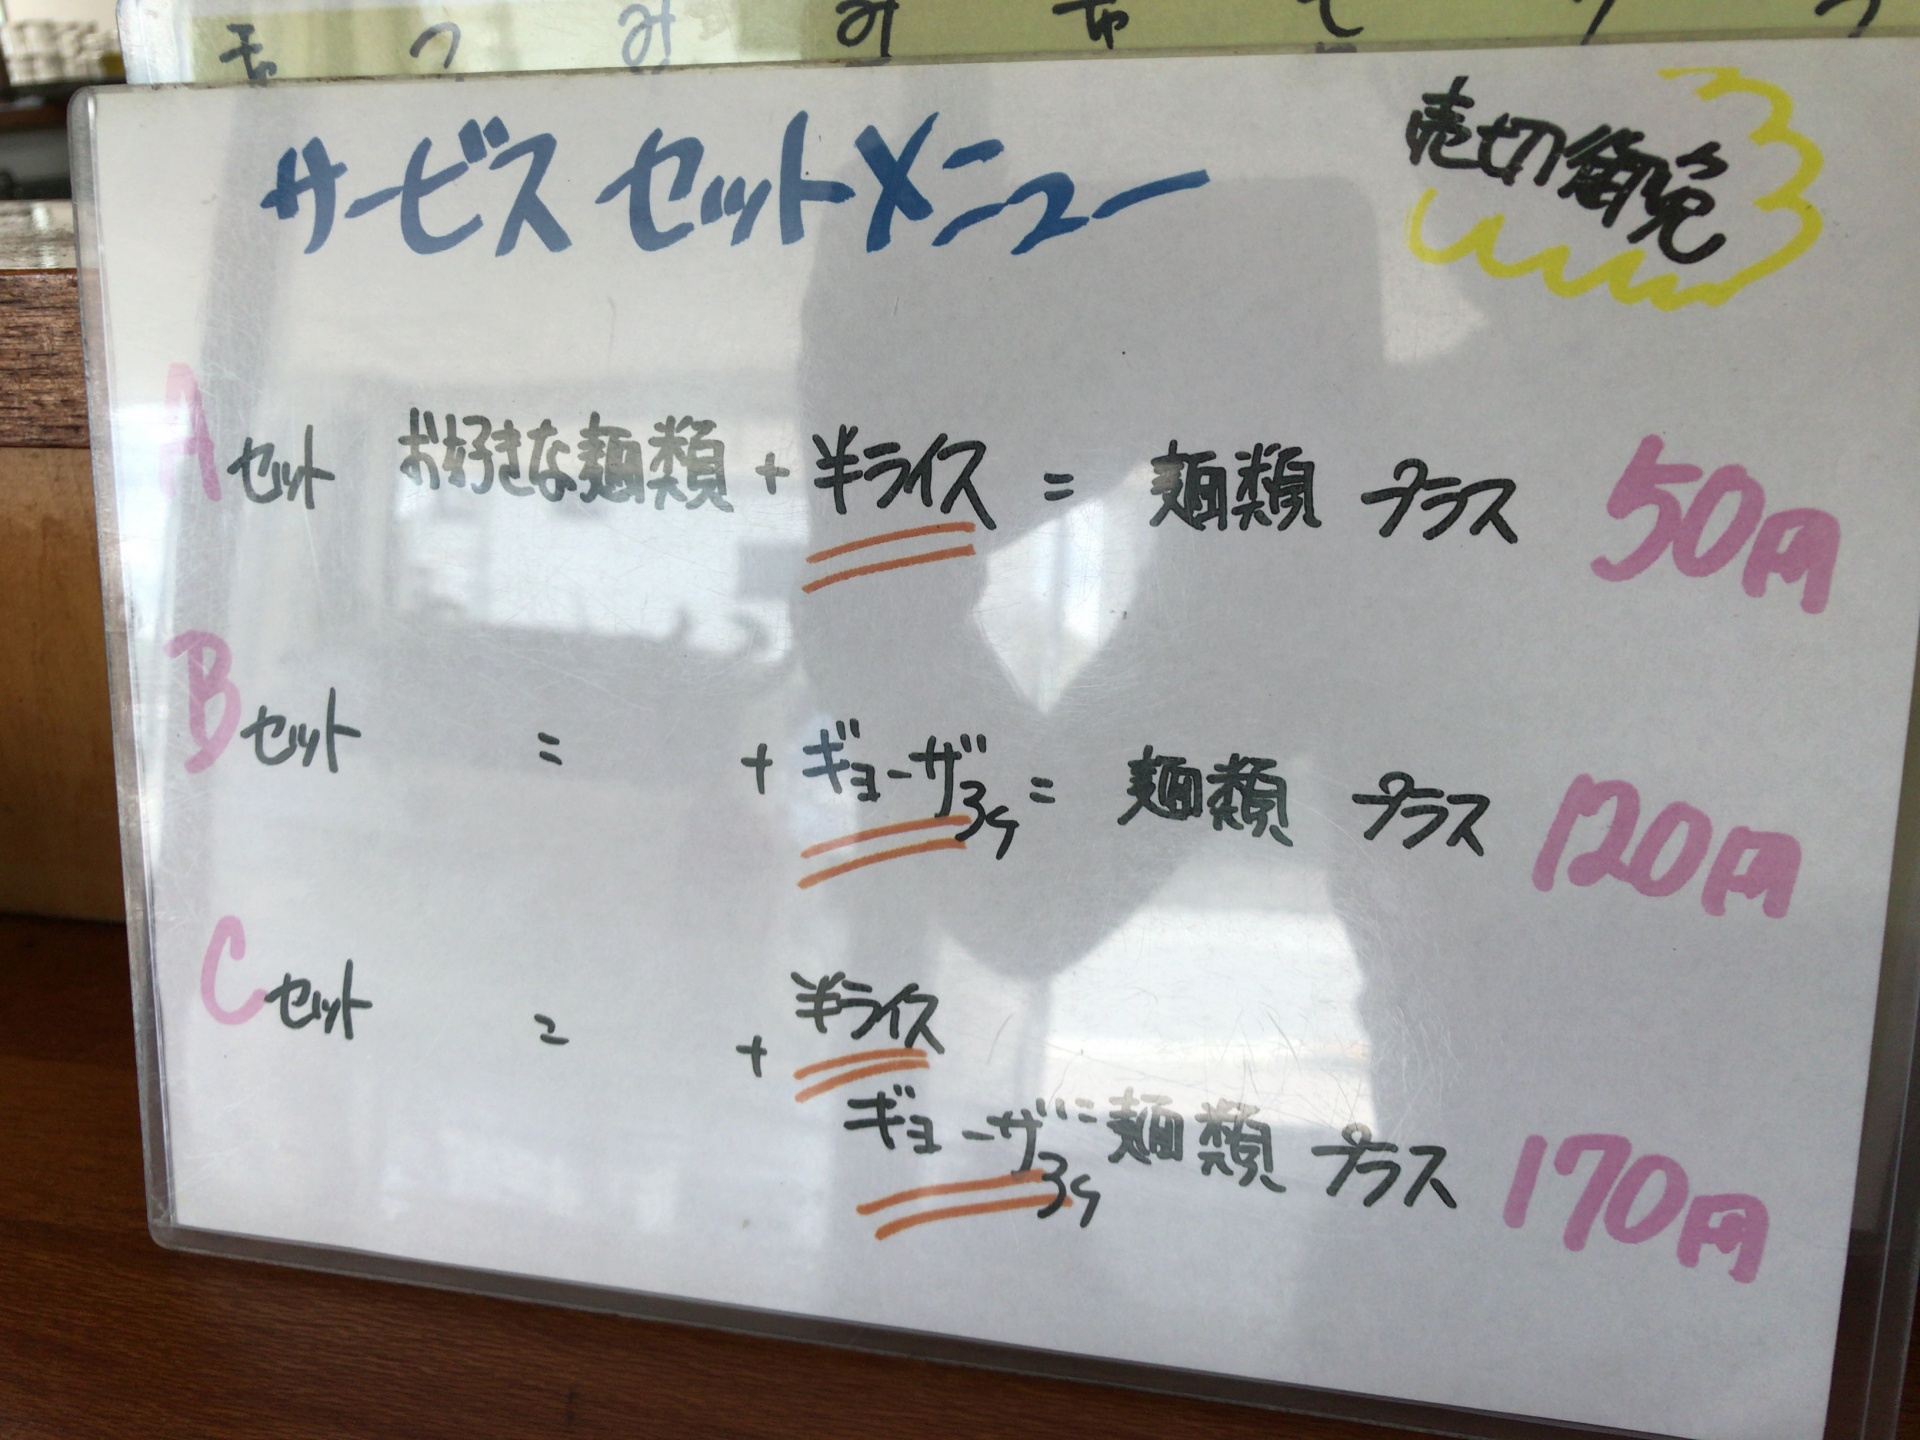 サービスセットメニュー
売切御免
Aセット お好きな麺類 + 半ライス = 麺類 プラス 50円
Bセット = + ギョーザ3ヶ = 麺類 プラス 120円
Cセット = + 半ライス
ギョーザ3ヶ = 麺類 プラス 170円